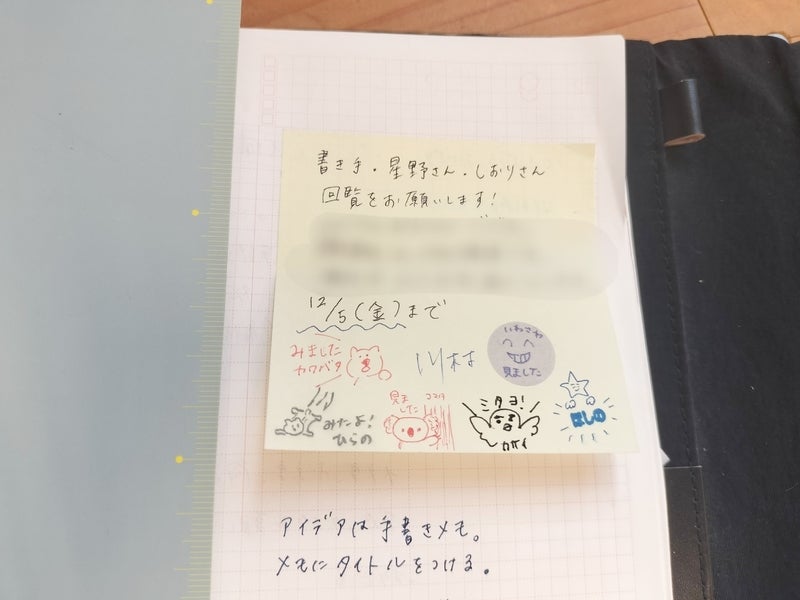 書き手・星野さん・しおりさん
回覧をお願いします!
12/5(金)まで
みました
カワバタ
川村
いわさわ
見ました
みたよ!
ひらの
見ま
した
ミタヨ!
カサイ
ほしの
アイデアは手書きメモ。
メモにタイトルをつける。